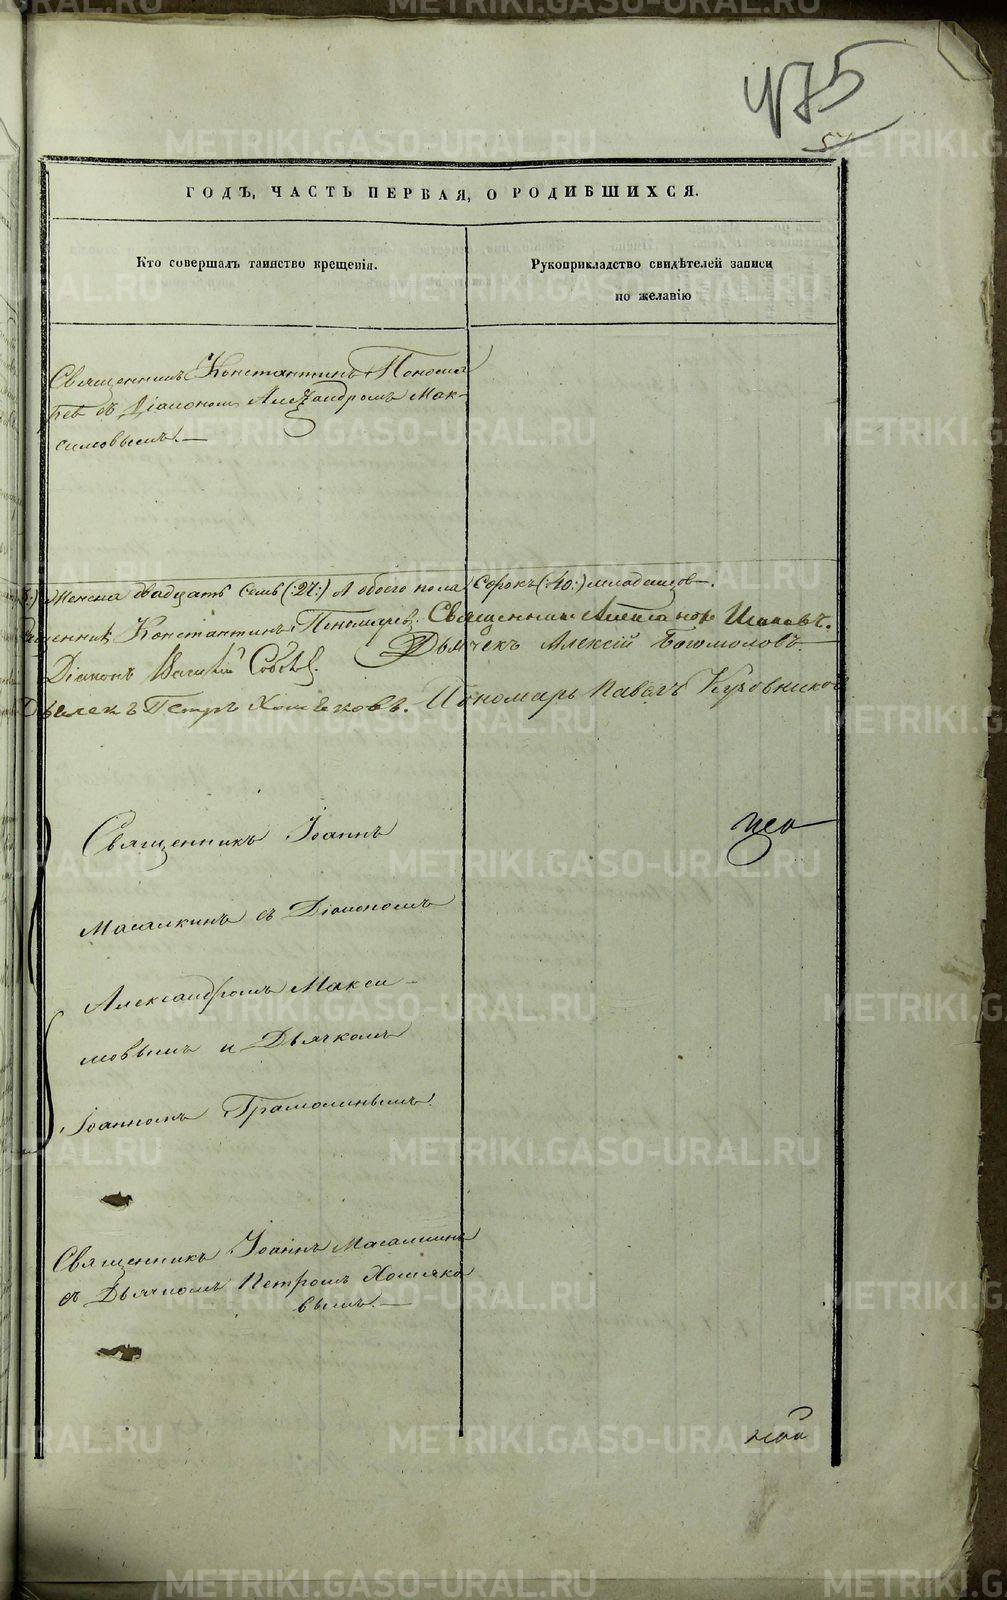 475
ГОДЪ, ЧАСТЬ ПЕРВАЯ, О РОДИВШИХСЯ.
Кто совершалъ таинство крещенія.
Рукоприкладство свидѣтелей записи
по желанію
Священникъ Константинъ Понома
ревъ съ Діакономъ Александромъ Мак-
симовымъ.—
Женска двадцать семь (:27:) А обоего пола сорокъ (:40:) младенцовъ.
Священникъ Константинъ Пономаревъ. Священникъ
Дьячекъ Алексій Богомоловъ.
Діаконъ Василій
Дьячекъ Петръ Хомяковъ. Пономарь Павелъ Кузовниковъ
Священникъ Іоаннъ
Масалкинъ съ Діакономъ
Александромъ Макси-
мовымъ и Дьячкомъ
Іоанномъ Грамолинымъ.
Священникъ Іоаннъ Масалкинъ
съ Дьячкомъ Петромъ Хомяко
вымъ.—
METRIKI.GASO-URAL.RU